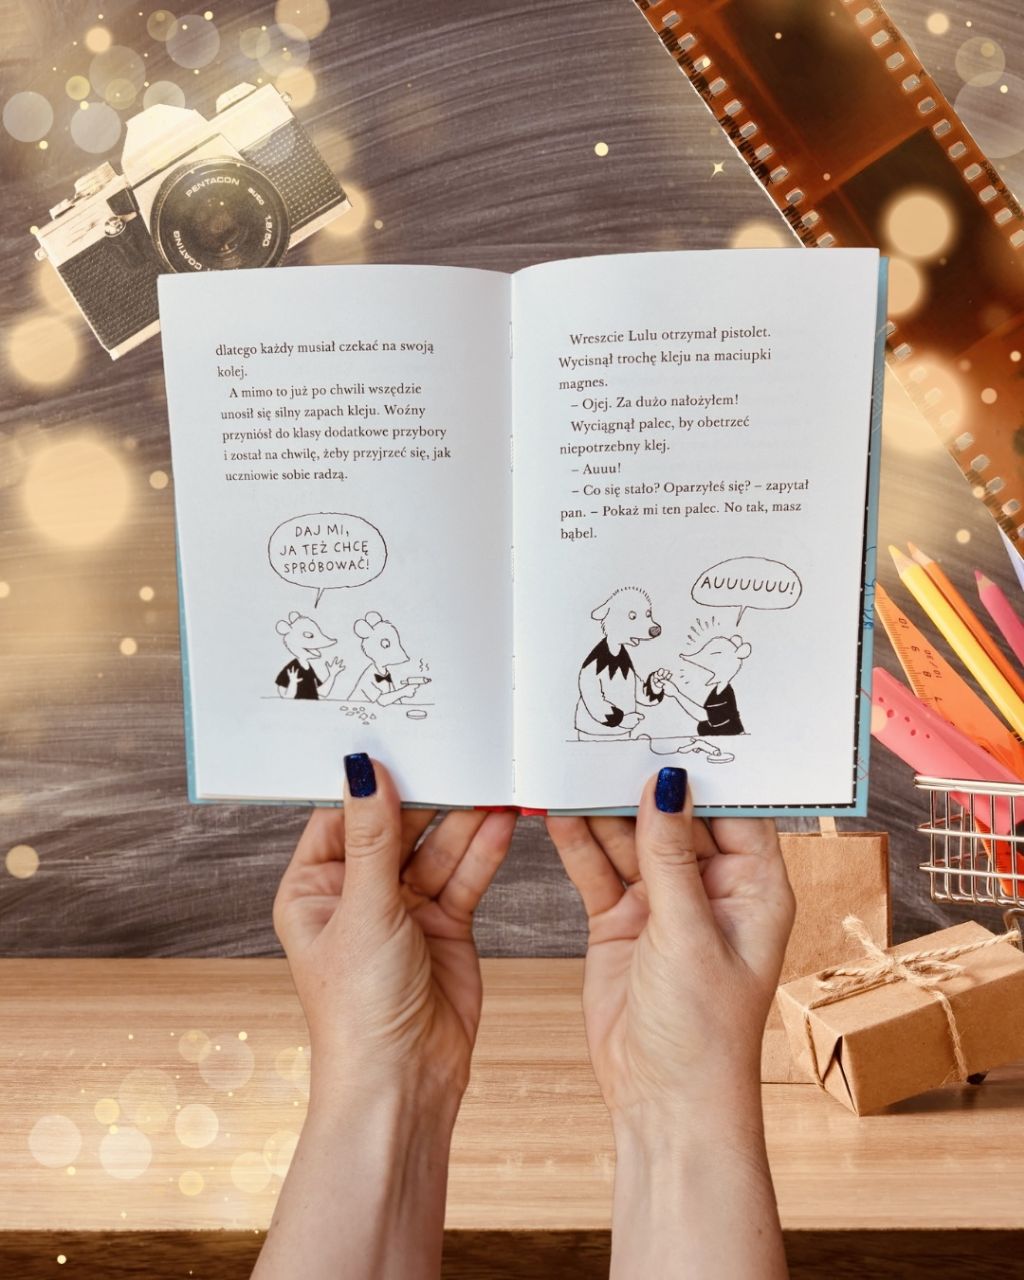 PENTACON
auto
1.8/50
COATING
dlatego każdy musiał czekać na swoją
kolej.
A mimo to już po chwili wszędzie
unosił się silny zapach kleju. Woźny
przyniósł do klasy dodatkowe przybory
i został na chwilę, żeby przyjrzeć się, jak
uczniowie sobie radzą.
DAJ MI,
JA TEŻ CHCĘ
SPRÓBOWAĆ!
Wreszcie Lulu otrzymał pistolet.
Wycisnął trochę kleju na maciupki
magnes.
– Ojej. Za dużo nałożyłem!
Wyciągnął palec, by obetrzeć
niepotrzebny klej.
– Auuu!
– Co się stało? Oparzyłeś się? – zapytał
pan. – Pokaż mi ten palec. No tak, masz
bąbel.
AUUUUUU!